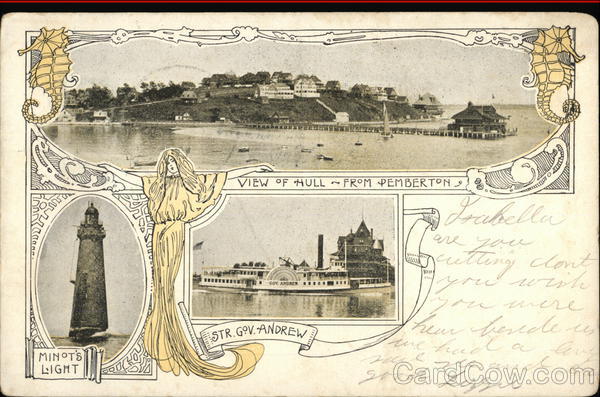 VIEW OF HULL ~ FROM PEMBERTON
MINOT'S
LIGHT
GOV. ANDREW
STR. GOV. ANDREW
Isabella
are you
cutting dont
you wish
you were
here beside us
we had a
CardCow.com